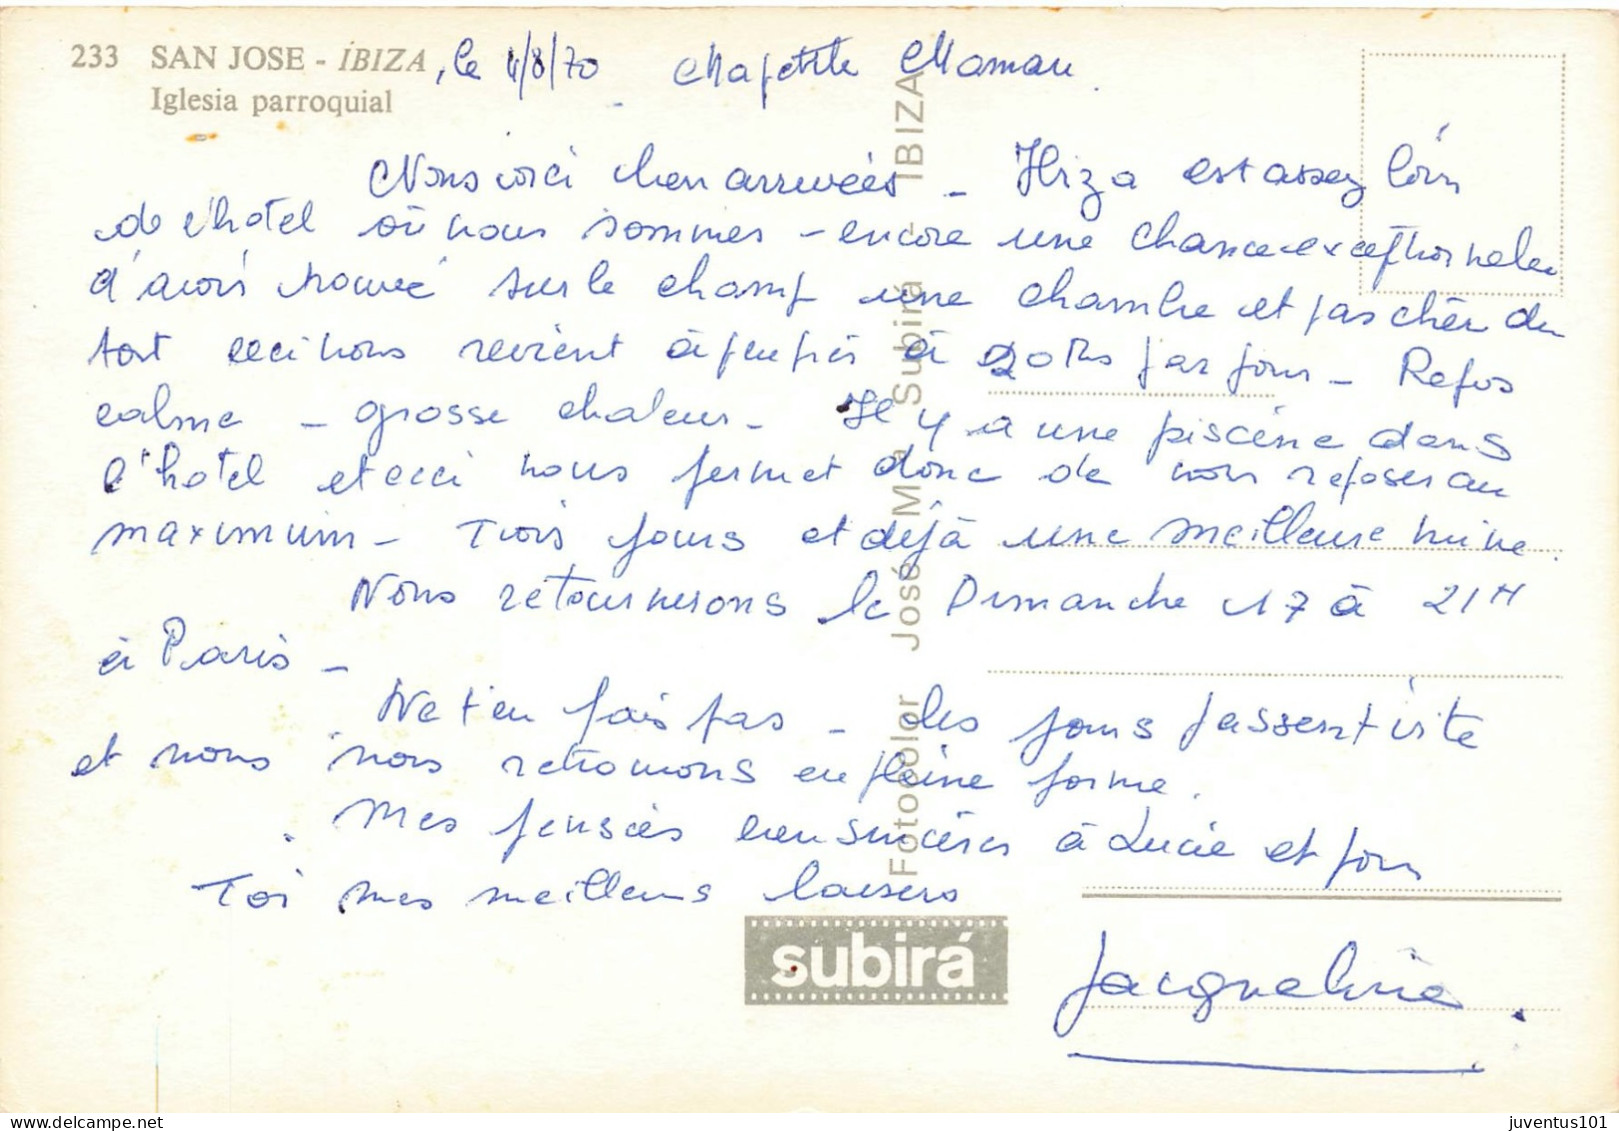 233 SAN JOSE - IBIZA, le 4/8/70 Ma petite Maman.
Iglesia parroquial
Nous voici bien arrivées - Ibiza est assez loin
de l'hotel où nous sommes - encore une chance exceptionnelle
d'avoir trouvé sur le champ une chambre et pas cher du
tout ceci nous revient à peu près à 20 frs par jour - Repos
calme - grosse chaleur - Il y a une piscine dans
l'hotel et ceci nous permet donc de nous reposer au
maximum - Trois jours et déjà une meilleure mine.
Nous retournerons le Dimanche 17 à 21H
à Paris -
Ne t'en fais pas - les jours passent vite
et nous nous retrouvons en pleine forme.
Mes pensées bien sincères à Lucie et pour
Toi mes meilleurs baisers
Jacqueline.
Fotocolor José Mª Subirá - IBIZA
subirá
juventus101